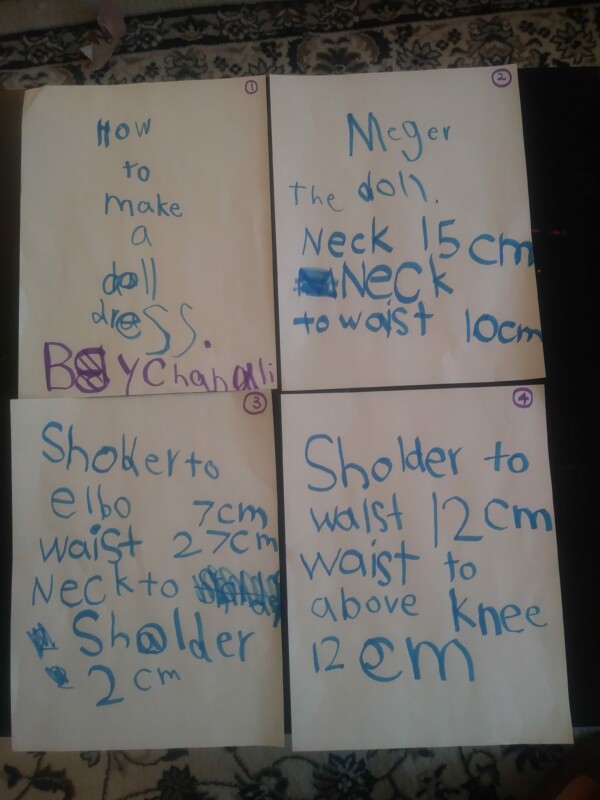 1
How
to
make
a
doll
dress.
By Chanalli
2
Meger
The doll.
Neck 15 cm
Neck
to waist 10cm
3
Sholder to
elbo 7cm
waist 27cm
Neck to
Sholder
2 cm
4
Sholder to
waist 12 cm
waist to
above knee
12 cm